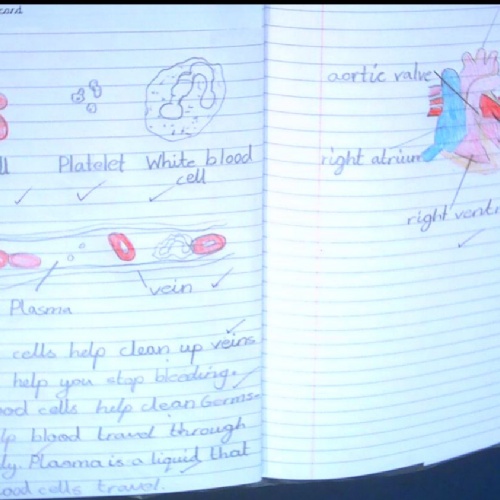 Platelet White blood
cell
Plasma
vein
cells help clean up veins
help you stop bleeding.
cells help clean Germs.
blood travel through
Plasma is a liquid that
cells travel.
aortic valve
right atrium
right